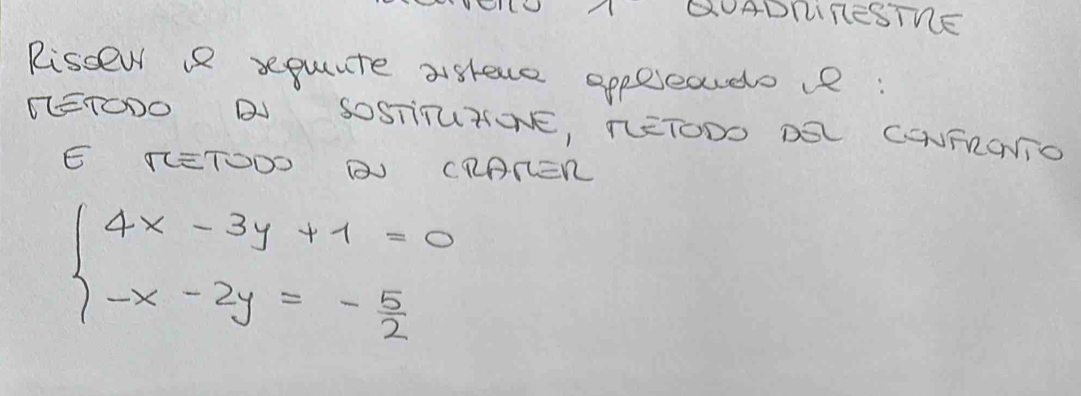 1° QUADRIMESTRE
Risolvi il seguente sistema applicando il :
METODO DI SOSTITUZIONE, METODO DEL CONFRONTO
E METODO DI CRAMER
4x - 3y + 1 = 0
-x - 2y = - 5/2